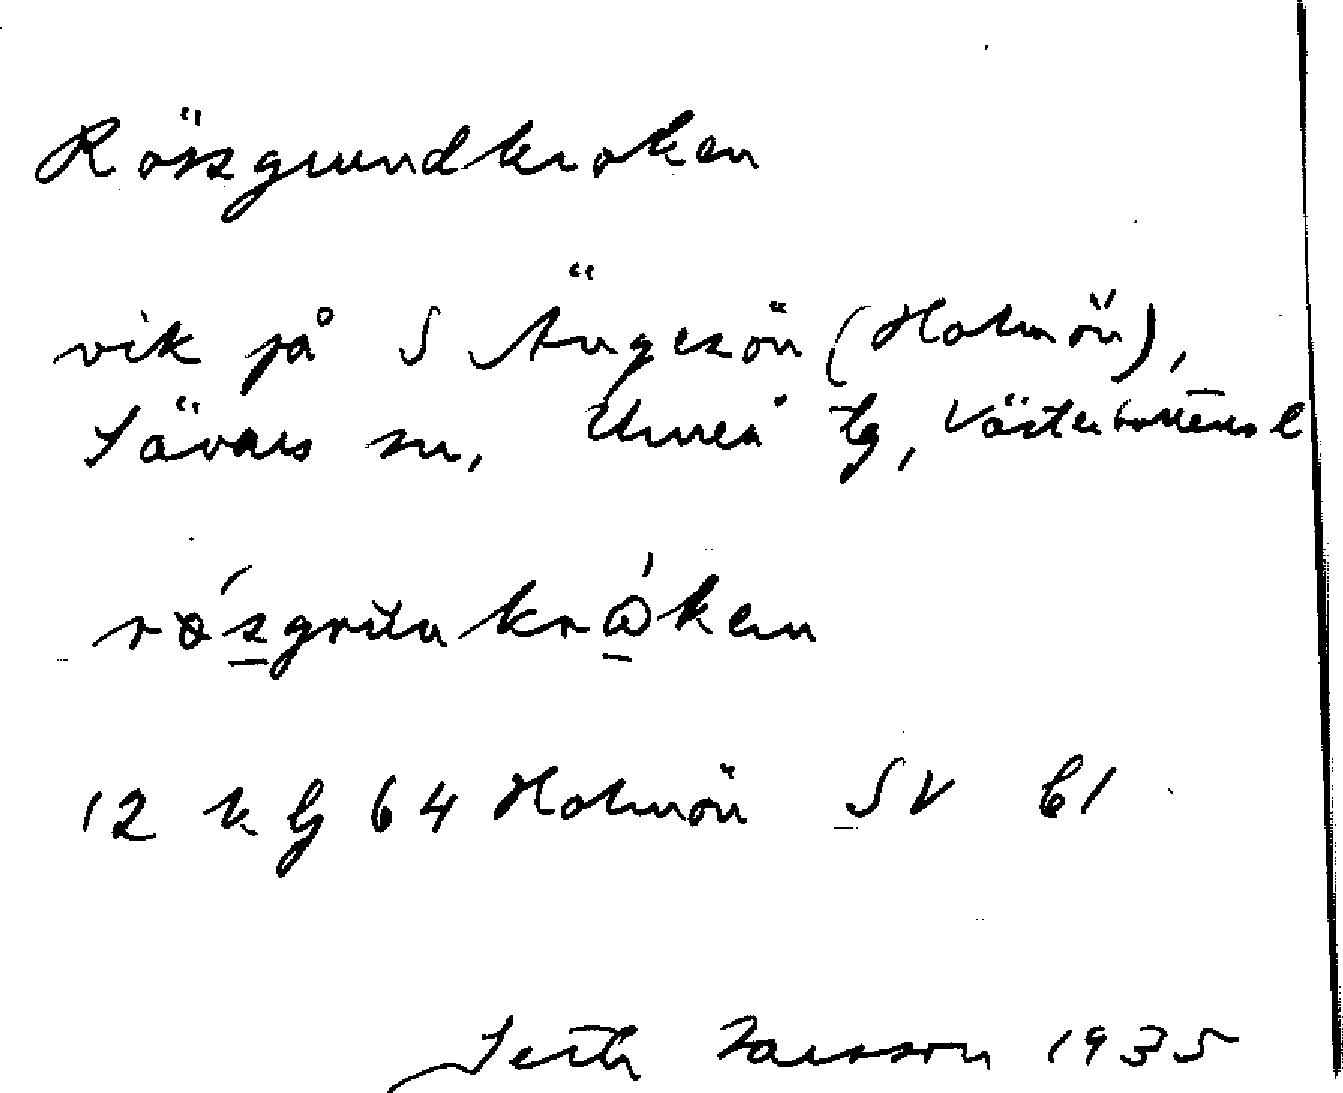 Rössgrundkroken
vik på S Ängesön (Holmön),
Sävars sn, Umeå tg, Västerbottens l
12 k G 64 Holmön SV 61
Seth Larsson 1935